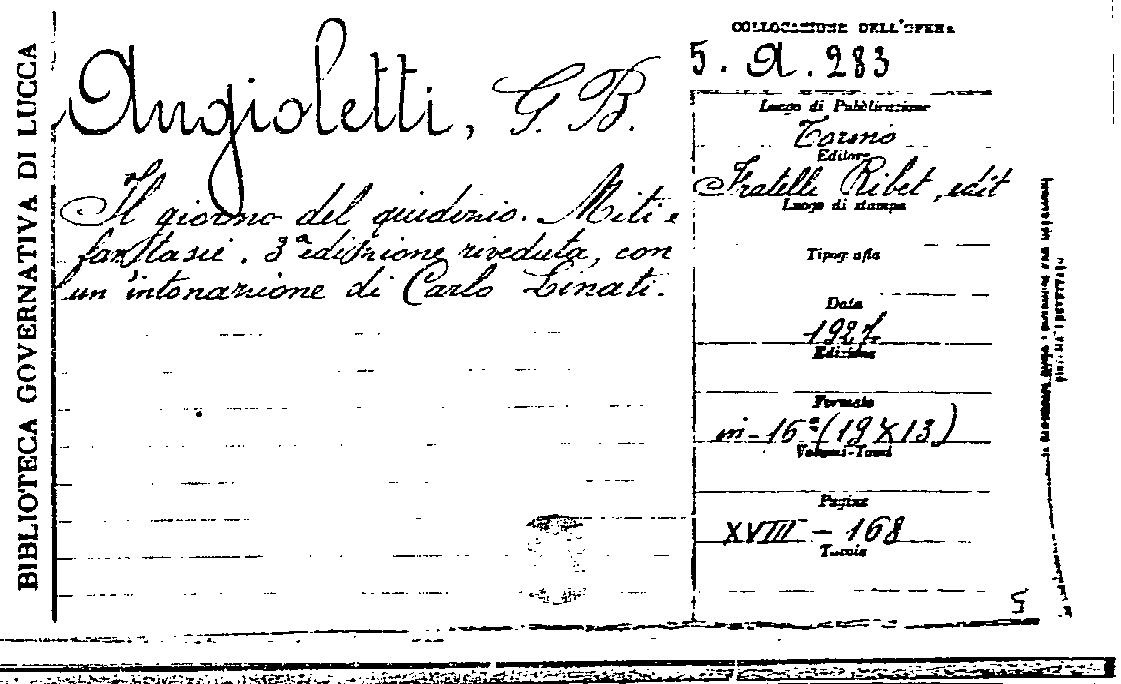 BIBLIOTECA GOVERNATIVA DI LUCCA
Angioletti, G. B.
Il giorno del giudizio. Miti e
fantasie. 3ª edizione riveduta, con
un'intonazione di Carlo Linati.
COLLOCAZIONE DELL'OPERA
5. A. 283
Luogo di Pubblicazione
Torino
Editore
Fratelli Ribet, edit
Luogo di stampa
Tipografia
Data
1927
Edizione
Formato
in-16° (19X13)
Volumi-Tomi
Pagine
XVIII - 168
Tavole
5